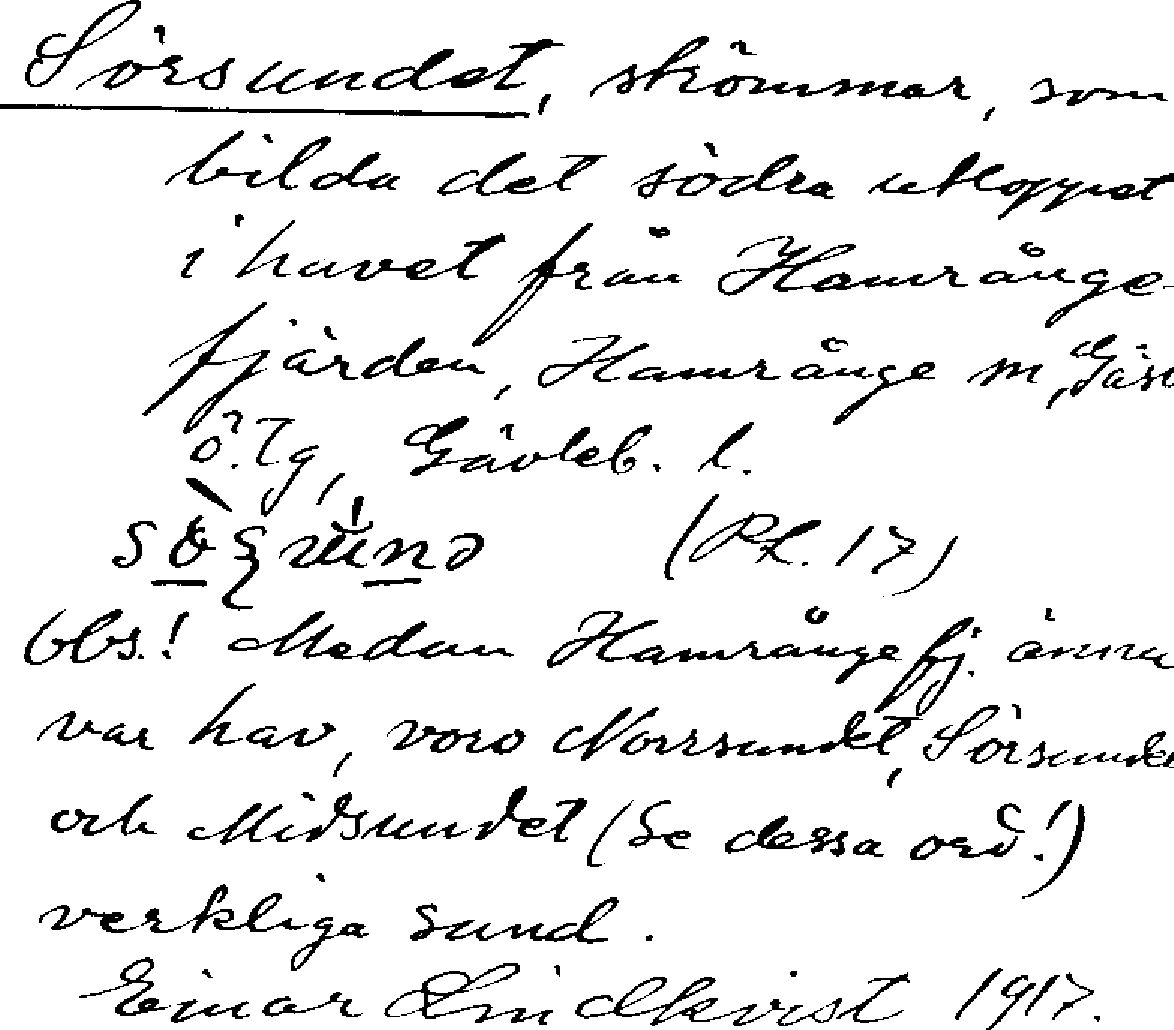 Sörsundet, strömmar, som
bilda det södra utloppet
i havet från Hamrånge-
fjärden, Hamrånge m, Gäs
ö. Tg, Gävleb. l.
(PL. 17)
Obs.! Medan Hamrångefj. ännu
var hav, voro Norrsundet, Sörsunde
och Midsundet (Se dessa ord!)
verkliga sund.
Einar Lindkvist 1917.